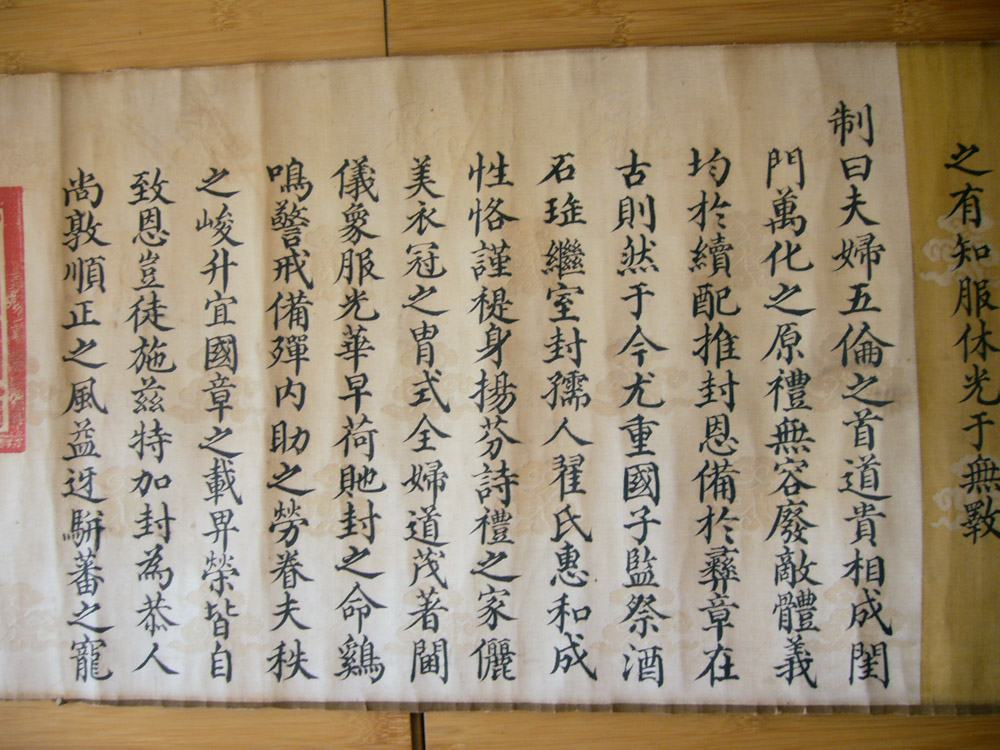 之有知服休光于無斁
制曰夫婦五倫之首道貴相成閨
門萬化之原禮無容廢敵體義
均於續配推封恩備於彝章在
古則然于今尤重國子監祭酒
石珤繼室封孺人翟氏惠和成
性恪謹禔身揚芬詩禮之家儷
美衣冠之胄式全婦道茂著閫
儀象服光華早荷貤封之命鷄
鳴警戒備殫内助之勞眷夫秩
之峻升宜國章之載畀榮皆自
致恩豈徒施茲特加封為恭人
尚敦順正之風益迓駢蕃之寵